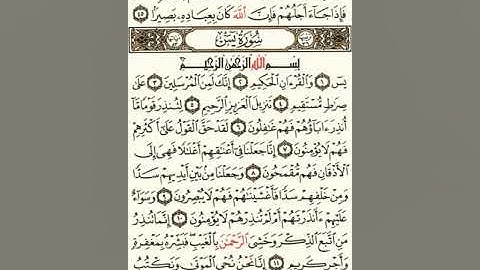 فَإِذَا جَآءَ أَجَلُهُمْ فَإِنَّ ٱللَّهَ كَانَ بِعِبَادِهِۦ بَصِيرًۢا ٤٥
سُورَةُ يسٓ
بِسْمِ ٱللَّهِ ٱلرَّحْمَٰنِ ٱلرَّحِيمِ
يسٓ ١ وَٱلْقُرْءَانِ ٱلْحَكِيمِ ٢ إِنَّكَ لَمِنَ ٱلْمُرْسَلِينَ ٣ عَلَىٰ
صِرَٰطٍ مُّسْتَقِيمٍ ٤ تَنزِيلَ ٱلْعَزِيزِ ٱلرَّحِيمِ ٥ لِتُنذِرَ قَوْمًا مَّآ
أُنذِرَ ءَابَآؤُهُمْ فَهُمْ غَٰفِلُونَ ٦ لَقَدْ حَقَّ ٱلْقَوْلُ عَلَىٰٓ أَكْثَرِهِمْ
فَهُمْ لَا يُؤْمِنُونَ ٧ إِنَّا جَعَلْنَا فِىٓ أَعْنَٰقِهِمْ أَغْلَٰلًا فَهِىَ إِلَى
ٱلْأَذْقَانِ فَهُم مُّقْمَحُونَ ٨ وَجَعَلْنَا مِنۢ بَيْنِ أَيْدِيهِمْ سَدًّا
وَمِنْ خَلْفِهِمْ سَدًّا فَأَغْشَيْنَٰهُمْ فَهُمْ لَا يُبْصِرُونَ ٩ وَسَوَآءٌ
عَلَيْهِمْ ءَأَنذَرْتَهُمْ أَمْ لَمْ تُنذِرْهُمْ لَا يُؤْمِنُونَ ١٠ إِنَّمَا تُنذِرُ
مَنِ ٱتَّبَعَ ٱلذِّكْرَ وَخَشِىَ ٱلرَّحْمَٰنَ بِٱلْغَيْبِ فَبَشِّرْهُ بِمَغْفِرَةٍ
وَأَجْرٍ كَرِيمٍ ١١ إِنَّا نَحْنُ نُحْىِ ٱلْمَوْتَىٰ وَنَكْتُبُ